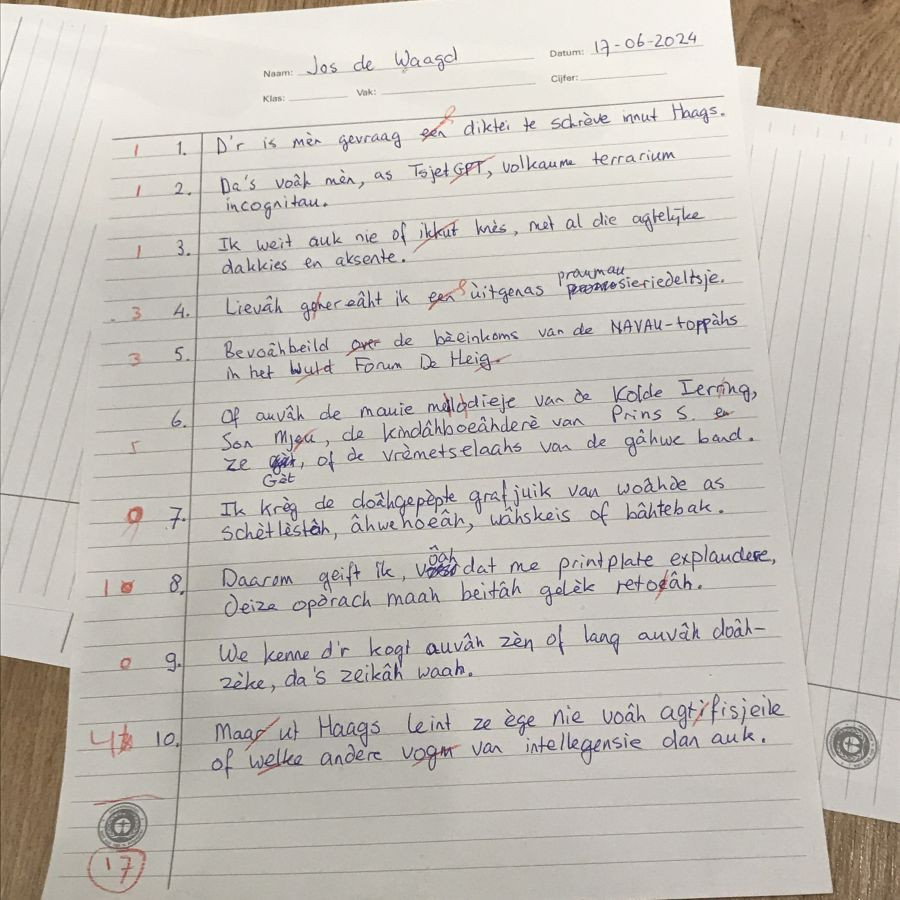 Naam: Jos de Waagd Datum: 17-06-2024
Klas: Vak: Cijfer:
1 1. D'r is mèn gevraag een diktei te schrève innut Haags.
1 2. Da's voâh mèn, as TsjetGPT, volkaume terrarium
incognitau.
1 3. Ik weit auk nie of ikkut knès, met al die agtelijke
dakkies en aksente.
3 4. Lievâh gehereâht ik een ùitgenas praumau sieriedeltsje.
3 5. Bevoâhbeild over de bèeinkoms van de NAVAU-toppâhs
in het Wurld Forum De Heig.
6. Of auvâh de mauie melodieje van de Kolde Ierring,
5 Son Mjeu, de kindâhboeâhderè van Prins S. en
ze Gèt, of de vrèmetselaahs van de gâhwe band.
0 7. Ik krèg de doâhgepèpte grafjuik van woâhde as
schètlèstâh, âhwehoeâh, wâhskeis of bâhtebak.
1 8. Daarom geift ik, voâh dat me printplate explaudere,
deize opdrach maah beitâh gelèk retoeâh.
0 9. We kenne d'r kogt auvâh zèn of lang auvâh doâh-
zèke, da's zeikâh waah.
4 10. Maar ut Haags leint ze ège nie voâh agtifisjeile
of welke andere vogm van intellegensie dan auk.
17